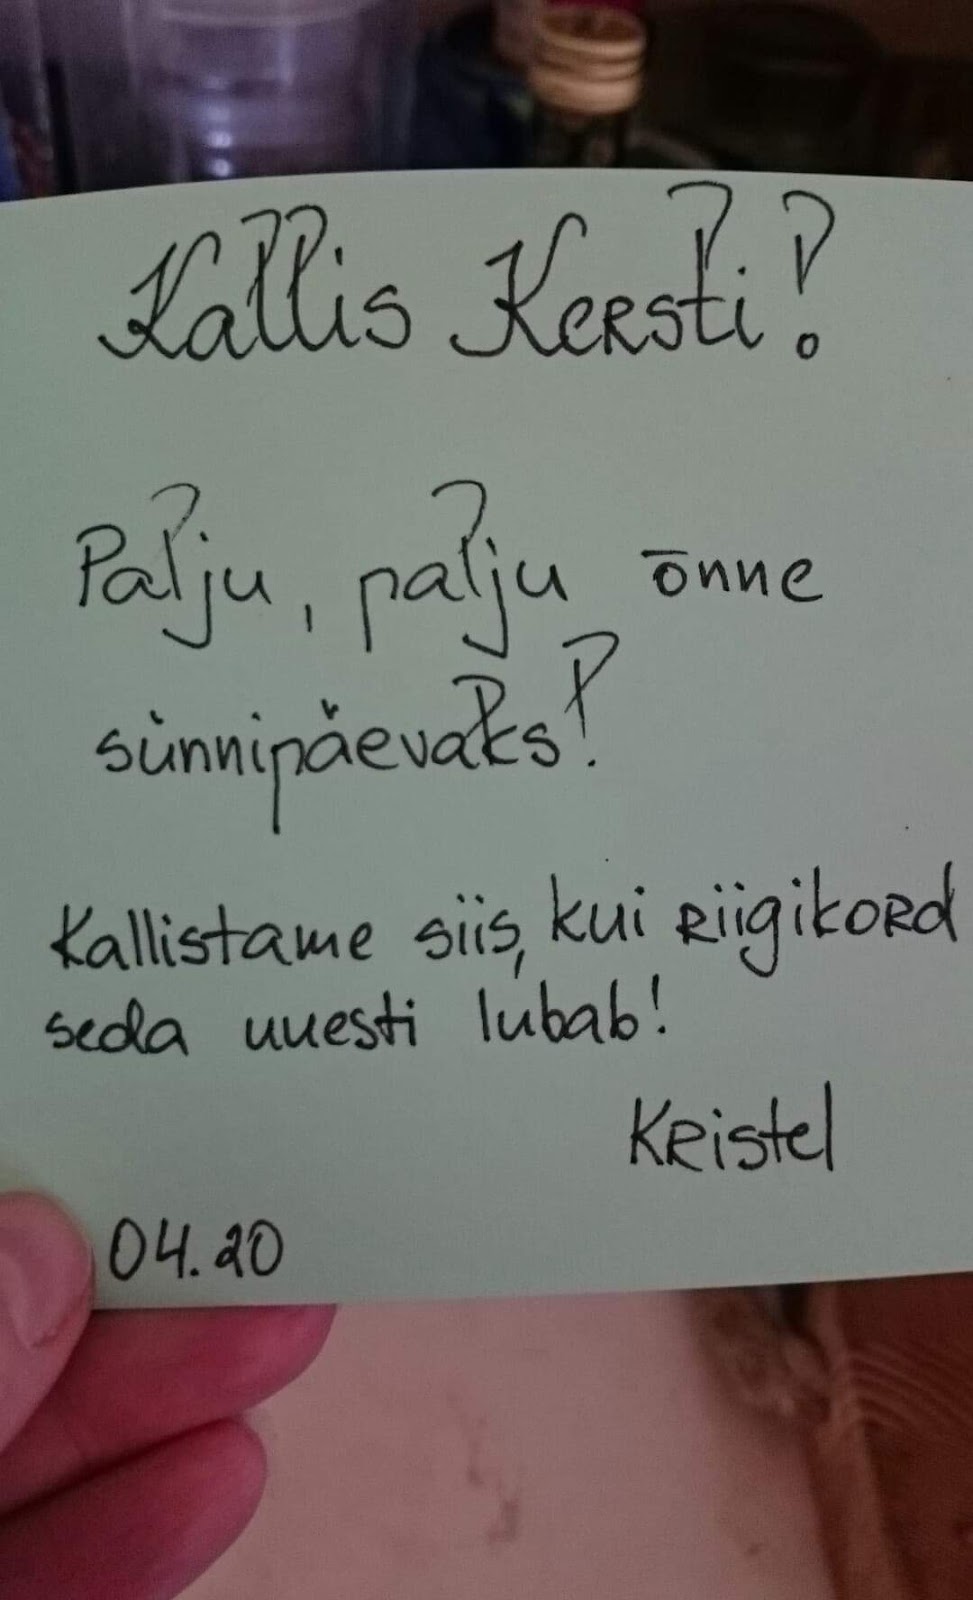 Kallis Kersti!
Palju, palju õnne
sünnipäevaks!
Kallistame siis, kui riigikord
seda uuesti lubab!
Kristel
04.20